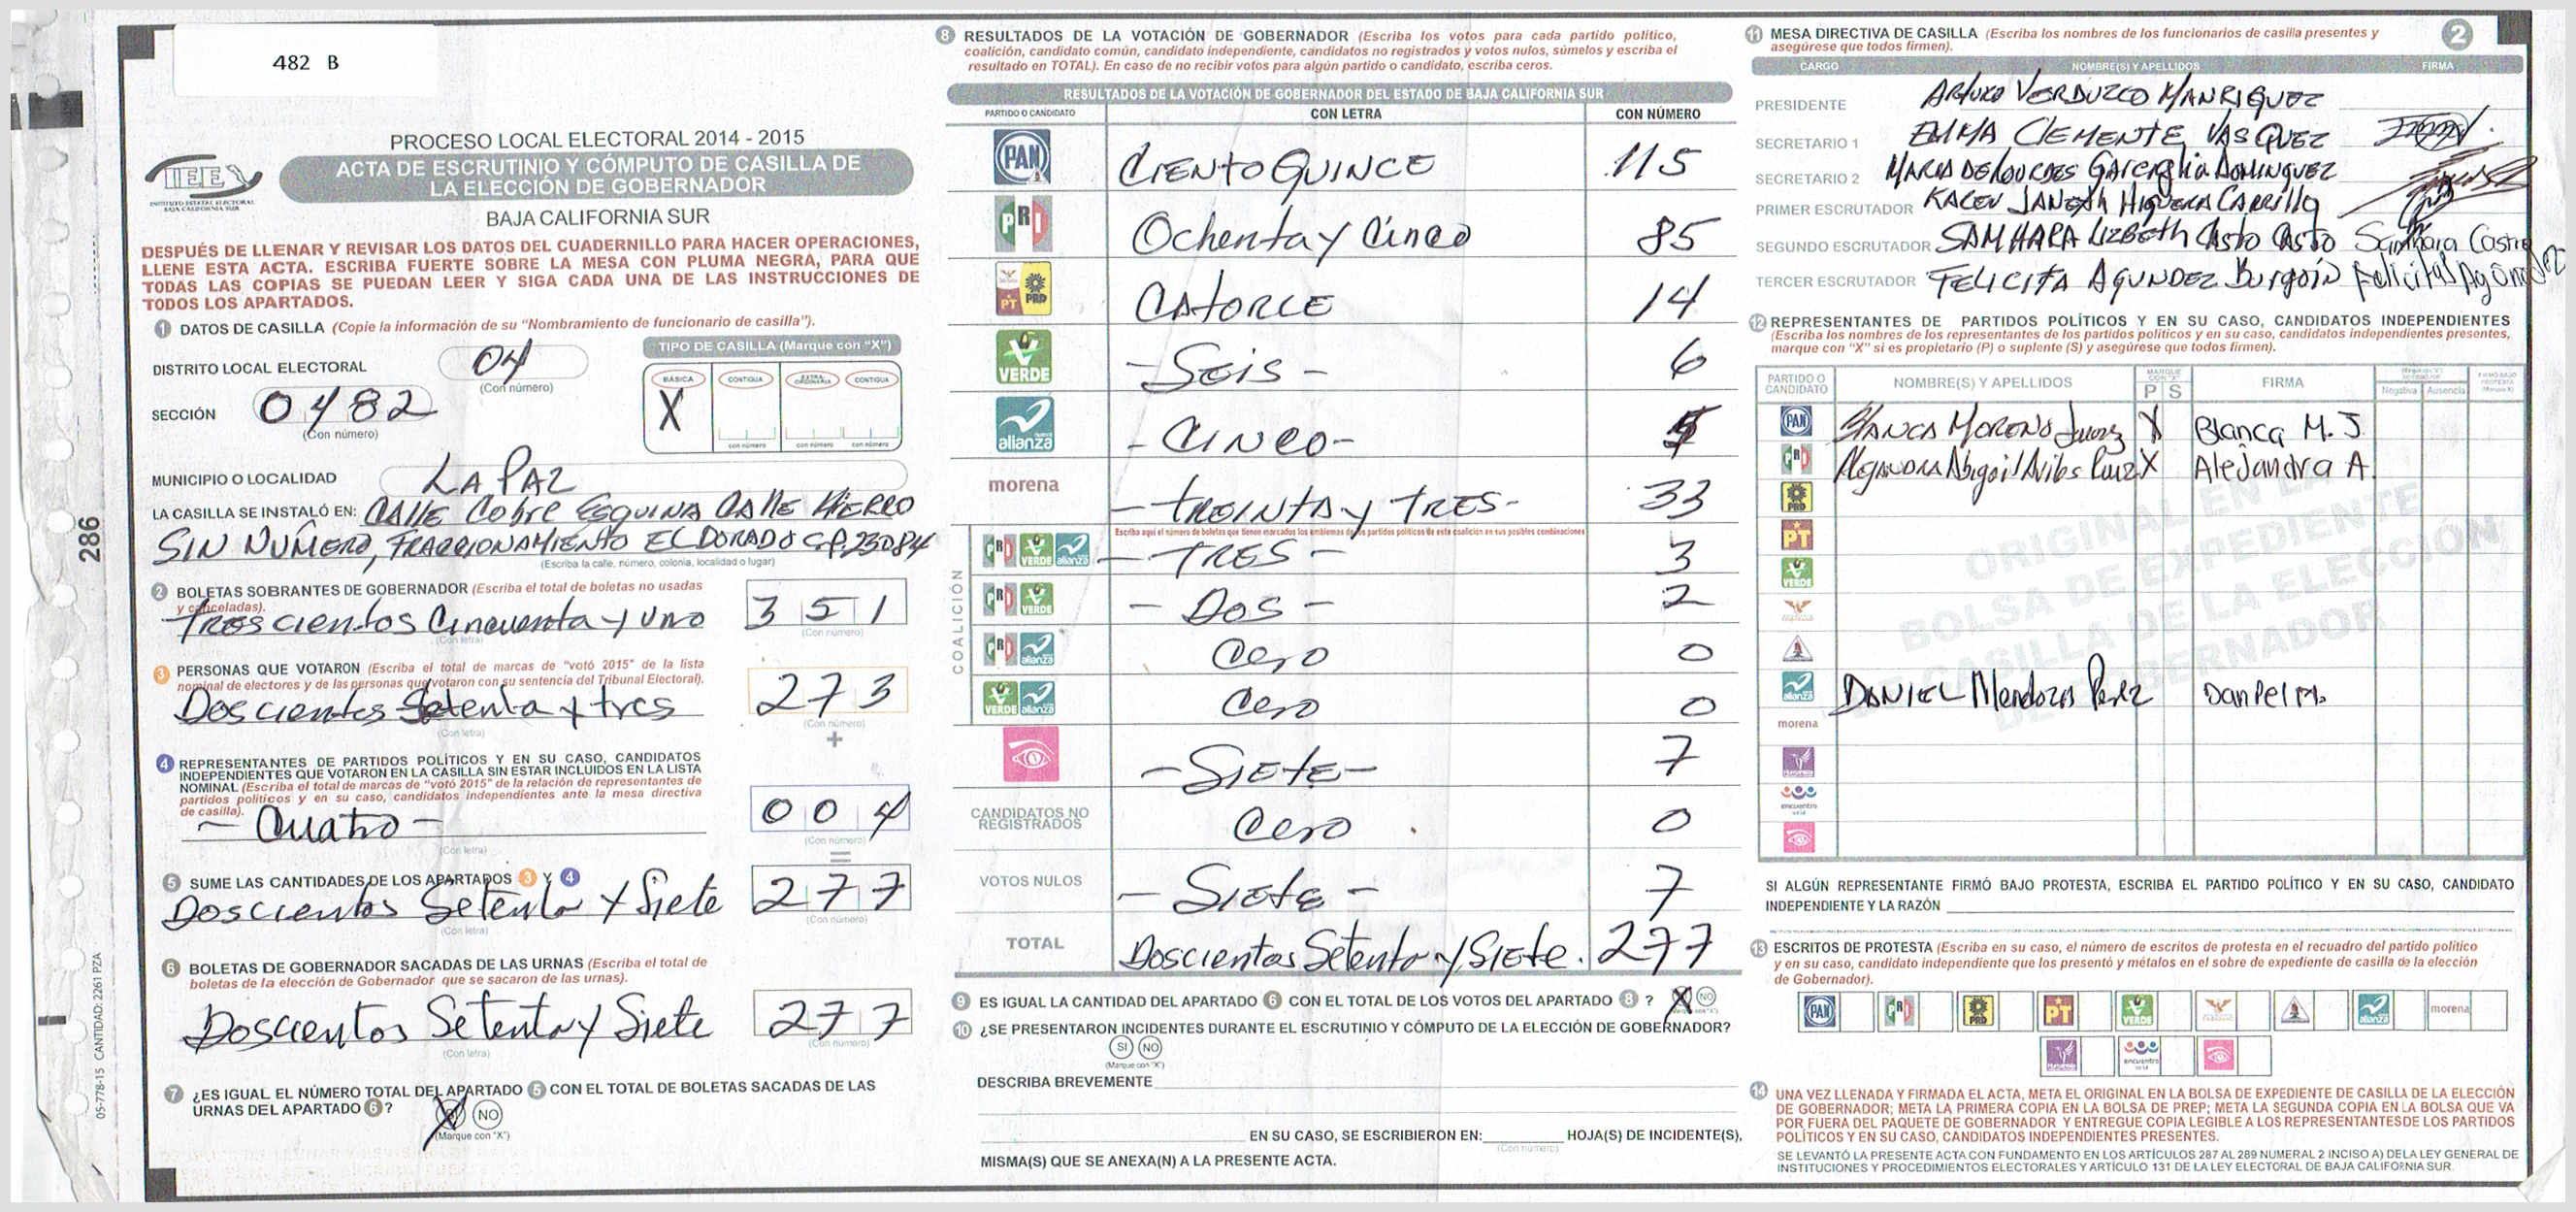 482 B
PROCESO LOCAL ELECTORAL 2014 - 2015
IEE
INSTITUTO ESTATAL ELECTORAL
BAJA CALIFORNIA SUR
ACTA DE ESCRUTINIO Y CÓMPUTO DE CASILLA DE
LA ELECCIÓN DE GOBERNADOR
BAJA CALIFORNIA SUR
DESPUÉS DE LLENAR Y REVISAR LOS DATOS DEL CUADERNILLO PARA HACER OPERACIONES,
LLENE ESTA ACTA. ESCRIBA FUERTE SOBRE LA MESA CON PLUMA NEGRA, PARA QUE
TODAS LAS COPIAS SE PUEDAN LEER Y SIGA CADA UNA DE LAS INSTRUCCIONES DE
TODOS LOS APARTADOS.
1 DATOS DE CASILLA (Copie la información de su "Nombramiento de funcionario de casilla").
DISTRITO LOCAL ELECTORAL 04
(Con número)
SECCIÓN 0482
(Con número)
TIPO DE CASILLA (Marque con "X")
BÁSICA CONTIGUA EXTRAORDINARIA CONTIGUA
X
con número con número con número
MUNICIPIO O LOCALIDAD LA PAZ
LA CASILLA SE INSTALÓ EN: CALLE Cobre ESQUINA CALLE HIERRO
SIN NUMERO, FRACCIONAMIENTO EL DORADO C.P. 23084
(Escriba la calle, número, colonia, localidad o lugar)
2 BOLETAS SOBRANTES DE GOBERNADOR (Escriba el total de boletas no usadas
y canceladas).
TRES cientos Cincuenta y uno 351
(Con letra) (Con número)
3 PERSONAS QUE VOTARON (Escriba el total de marcas de "votó 2015" de la lista
nominal de electores y de las personas que votaron con su sentencia del Tribunal Electoral).
Doscientos Setenta y tres 273
(Con letra) (Con número)
+
4 REPRESENTANTES DE PARTIDOS POLÍTICOS Y EN SU CASO, CANDIDATOS
INDEPENDIENTES QUE VOTARON EN LA CASILLA SIN ESTAR INCLUIDOS EN LA LISTA
NOMINAL (Escriba el total de marcas de "votó 2015" de la relación de representantes de
partidos políticos y en su caso, candidatos independientes ante la mesa directiva
de casilla).
- Cuatro - 004
(Con letra) (Con número)
=
5 SUME LAS CANTIDADES DE LOS APARTADOS 3 Y 4
Doscientos Setenta y Siete 277
(Con letra) (Con número)
6 BOLETAS DE GOBERNADOR SACADAS DE LAS URNAS (Escriba el total de
boletas de la elección de Gobernador que se sacaron de las urnas).
Doscientos Setenta y Siete 277
(Con letra) (Con número)
7 ¿ES IGUAL EL NÚMERO TOTAL DEL APARTADO 5 CON EL TOTAL DE BOLETAS SACADAS DE LAS
URNAS DEL APARTADO 6 ? X NO
(Marque con "X")
286
05-778-15 CANTIDAD: 2261 PZA
8 RESULTADOS DE LA VOTACIÓN DE GOBERNADOR (Escriba los votos para cada partido político,
coalición, candidato común, candidato independiente, candidatos no registrados y votos nulos, súmelos y escriba el
resultado en TOTAL). En caso de no recibir votos para algún partido o candidato, escriba ceros.
RESULTADOS DE LA VOTACIÓN DE GOBERNADOR DEL ESTADO DE BAJA CALIFORNIA SUR
PARTIDO O CANDIDATO CON LETRA CON NÚMERO
PAN CIENTO QUINCE 115
PRI Ochenta y Cinco 85
PT PRD CATORCE 14
VERDE - SEIS - 6
alianza - CINCO - 5
morena - TREINTA y TRES - 33
Escriba aquí el número de boletas que tienen marcados los emblemas de los partidos políticos de esta coalición en sus posibles combinaciones
COALICIÓN
PRI VERDE alianza - TRES - 3
PRI VERDE - DOS - 2
PRI alianza Cero 0
VERDE alianza Cero 0
- SIETE - 7
CANDIDATOS NO
REGISTRADOS Cero 0
VOTOS NULOS - SIETE - 7
TOTAL Doscientos Setenta y SIETE. 277
9 ES IGUAL LA CANTIDAD DEL APARTADO 6 CON EL TOTAL DE LOS VOTOS DEL APARTADO 8 ? X NO
10 ¿SE PRESENTARON INCIDENTES DURANTE EL ESCRUTINIO Y CÓMPUTO DE LA ELECCIÓN DE GOBERNADOR?
SI NO
(Marque con "X")
DESCRIBA BREVEMENTE
EN SU CASO, SE ESCRIBIERON EN: HOJA(S) DE INCIDENTE(S),
(Con número)
MISMA(S) QUE SE ANEXA(N) A LA PRESENTE ACTA.
11 MESA DIRECTIVA DE CASILLA (Escriba los nombres de los funcionarios de casilla presentes y
asegúrese que todos firmen).
2
CARGO NOMBRE(S) Y APELLIDOS FIRMA
PRESIDENTE ARTURO VERDUZCO MANRIQUEZ
SECRETARIO 1 EMMA CLEMENTE VASQUEZ
SECRETARIO 2 MARIA DE LOURDES Garciglia DOMINGUEZ
PRIMER ESCRUTADOR KAREN JANETH HIGUERA CARRILLO
SEGUNDO ESCRUTADOR SAMHARA LIZBETH CASTO CASTO Samhara Castro
TERCER ESCRUTADOR FELICITA AGUNDEZ Burgoin Felicitas Agundez
12 REPRESENTANTES DE PARTIDOS POLÍTICOS Y EN SU CASO, CANDIDATOS INDEPENDIENTES
(Escriba los nombres de los representantes de los partidos políticos y en su caso, candidatos independientes presentes,
marque con "X" si es propietario (P) o suplente (S) y asegúrese que todos firmen).
PARTIDO O
CANDIDATO NOMBRE(S) Y APELLIDOS P S FIRMA Negativa Ausencia
PAN BLANCA MORENO Juarez X Blanca M. J.
PRI Alejandra Abigail Aviles Ruiz X Alejandra A.
PRD
PT
VERDE
alianza DANIEL Mendoza Perez Daniel M.
morena
encuentro
ORIGINAL EN LA
BOLSA DE EXPEDIENTE
DE CASILLA DE LA ELECCIÓN
DE GOBERNADOR
SI ALGÚN REPRESENTANTE FIRMÓ BAJO PROTESTA, ESCRIBA EL PARTIDO POLÍTICO Y EN SU CASO, CANDIDATO
INDEPENDIENTE Y LA RAZÓN
13 ESCRITOS DE PROTESTA (Escriba en su caso, el número de escritos de protesta en el recuadro del partido político
y en su caso, candidato independiente que los presentó y métalos en el sobre de expediente de casilla de la elección
de Gobernador).
PAN PRI PRD PT VERDE alianza morena
encuentro
14 UNA VEZ LLENADA Y FIRMADA EL ACTA, META EL ORIGINAL EN LA BOLSA DE EXPEDIENTE DE CASILLA DE LA ELECCIÓN
DE GOBERNADOR; META LA PRIMERA COPIA EN LA BOLSA DE PREP; META LA SEGUNDA COPIA EN LA BOLSA QUE VA
POR FUERA DEL PAQUETE DE GOBERNADOR Y ENTREGUE COPIA LEGIBLE A LOS REPRESENTANTES DE LOS PARTIDOS
POLÍTICOS Y EN SU CASO, CANDIDATOS INDEPENDIENTES PRESENTES.
SE LEVANTÓ LA PRESENTE ACTA CON FUNDAMENTO EN LOS ARTÍCULOS 287 AL 289 NUMERAL 2 INCISO A) DE LA LEY GENERAL DE
INSTITUCIONES Y PROCEDIMIENTOS ELECTORALES Y ARTÍCULO 131 DE LA LEY ELECTORAL DE BAJA CALIFORNIA SUR.